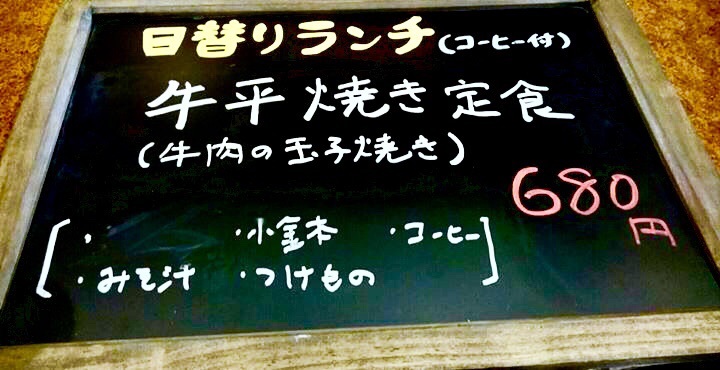 日替りランチ(コーヒー付)
牛平焼き定食
(牛肉の玉子焼き)
680
円
・ ・小鉢 ・コーヒー
・みそ汁 ・つけもの